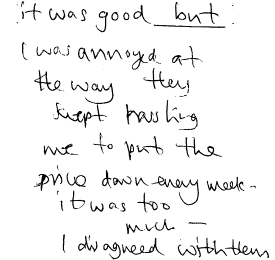 it was good but
I was annoyed at
the way they
kept hassling
me to put the
price down every week -
it was too
much -
I disagreed with them